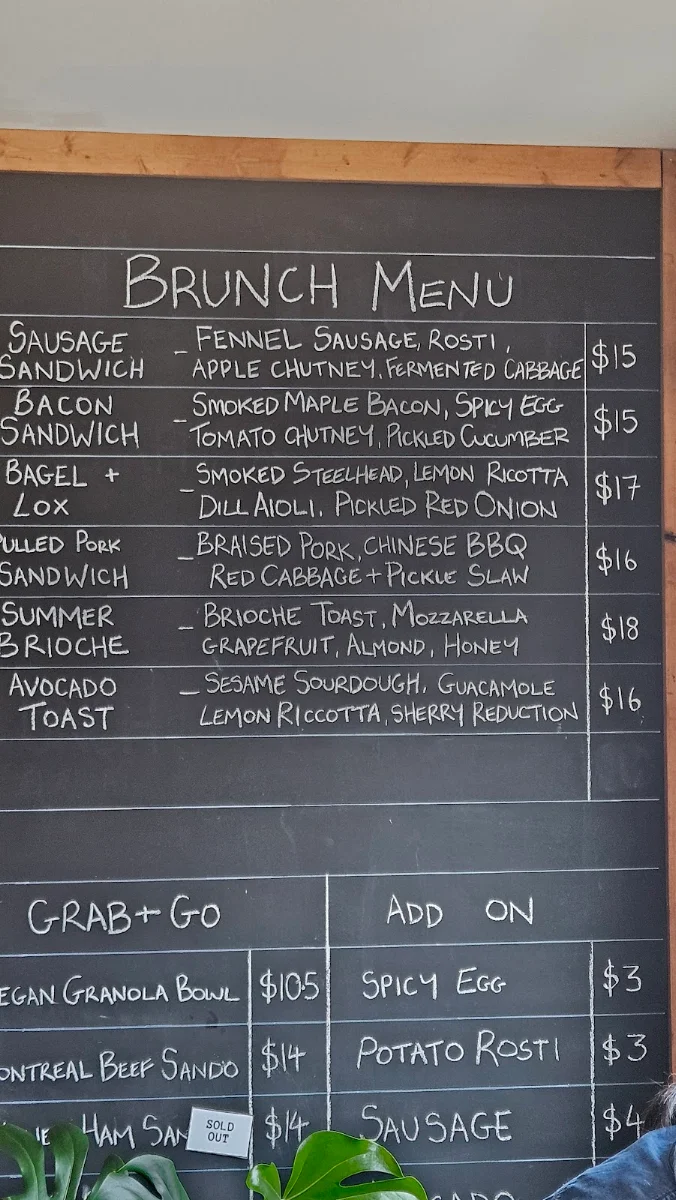 BRUNCH MENU
SAUSAGE SANDWICH - FENNEL SAUSAGE, ROSTI, $15
APPLE CHUTNEY, FERMENTED CABBAGE
BACON SANDWICH - SMOKED MAPLE BACON, SPICY EGG $15
TOMATO CHUTNEY, PICKLED CUCUMBER
BAGEL + LOX - SMOKED STEELHEAD, LEMON RICOTTA $17
DILL AIOLI, PICKLED RED ONION
PULLED PORK SANDWICH - BRAISED PORK, CHINESE BBQ $16
RED CABBAGE + PICKLE SLAW
SUMMER BRIOCHE - BRIOCHE TOAST, MOZZARELLA $18
GRAPEFRUIT, ALMOND, HONEY
AVOCADO TOAST - SESAME SOURDOUGH, GUACAMOLE $16
LEMON RICCOTTA, SHERRY REDUCTION
GRAB + GO
EGAN GRANOLA BOWL $10.5
ONTREAL BEEF SANDO $14
HAM SAN $14
SOLD
OUT
ADD ON
SPICY EGG $3
POTATO ROSTI $3
SAUSAGE $4